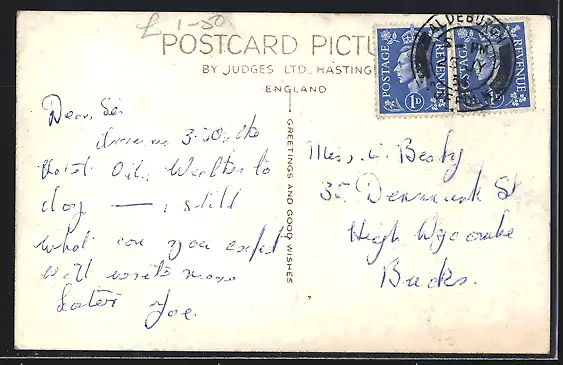 £ 1-50
POSTCARD PICTU
BY JUDGES LTD. HASTING
ENGLAND
GREETINGS AND GOOD WISHES
POSTAGE REVENUE
1D
POSTAGE REVENUE
1D
ALDEBURGH
PM
Dear Sis
3-30, the
Worst
day — , still
what can you expect
Will write more
later Joe.
Miss, L. Besty
35 Denmark St
High Wycombe
Bucks.